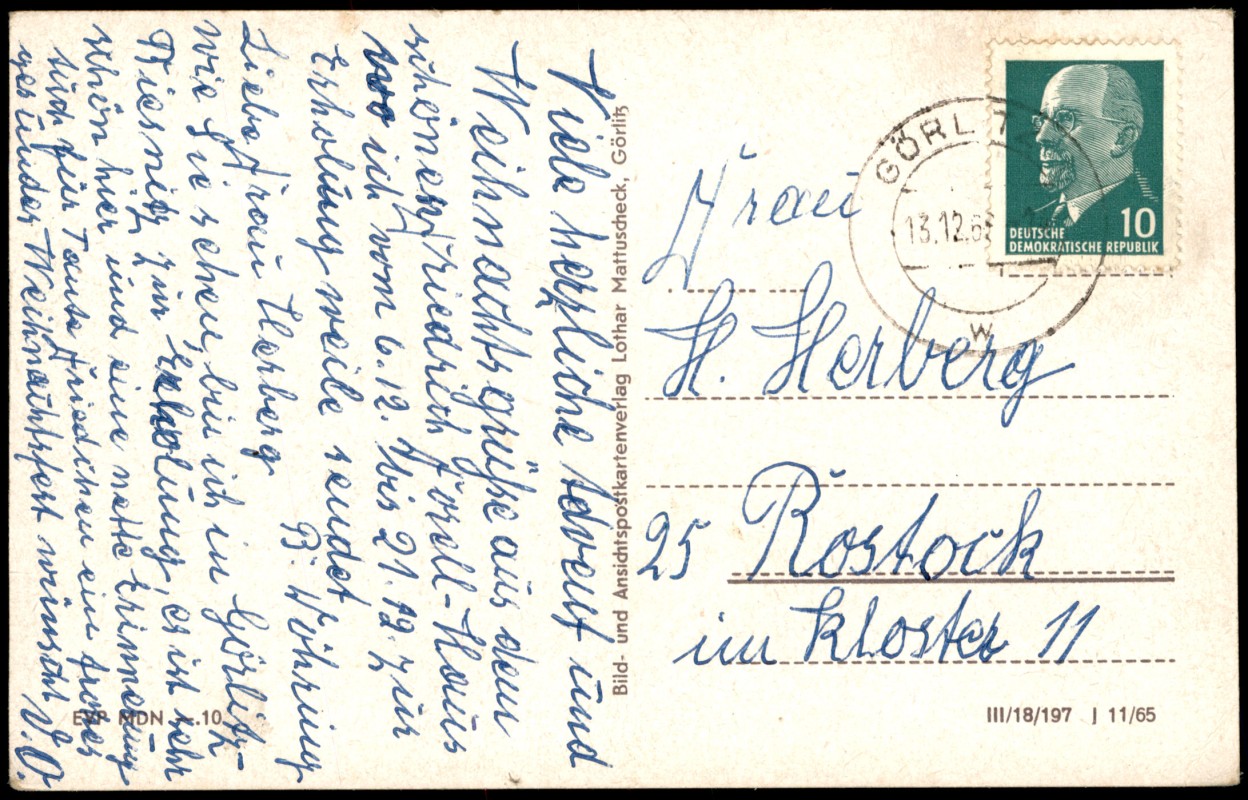 Viele herzliche Advent und
Weihnachtsgrüße aus dem
schönen Friedrich Förell-Haus
wo ich vom 6.12. bis 21.12. zur
Erholung weile sendet
B. Föhring
Liebe Frau Herberg
wie Sie sehen, bin ich in Görlitz-
Biesnitz zur Erholung, es ist sehr
schön hier und eine nette Erinnerung
für Tante Friedchen ein frohes
gesundes Weihnachtsfest wünscht
EVP MDN -.10
Bild- und Ansichtspostkartenverlag Lothar Mattuscheck, Görlitz
GÖRLITZ
13.12.6
W
10
DEUTSCHE
DEMOKRATISCHE REPUBLIK
Frau
H. Herberg
25 Rostock
im Kloster 11
III/18/197 J 11/65